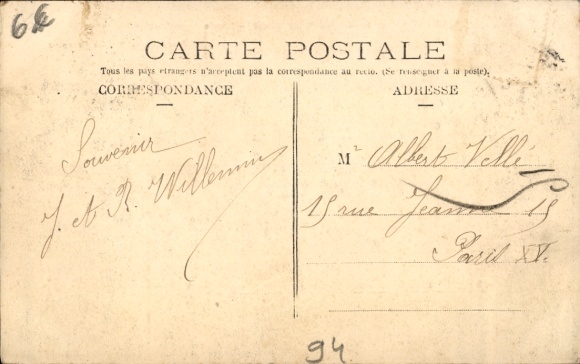 66
CARTE POSTALE
Tous les pays étrangers n'acceptent pas la correspondance au recto. (Se renseigner à la poste).
CORRESPONDANCE
ADRESSE
Souvenir
J. et R. Willemin
Mr Albert Vellé
15 rue Jeanne 15
Paris XV.
94